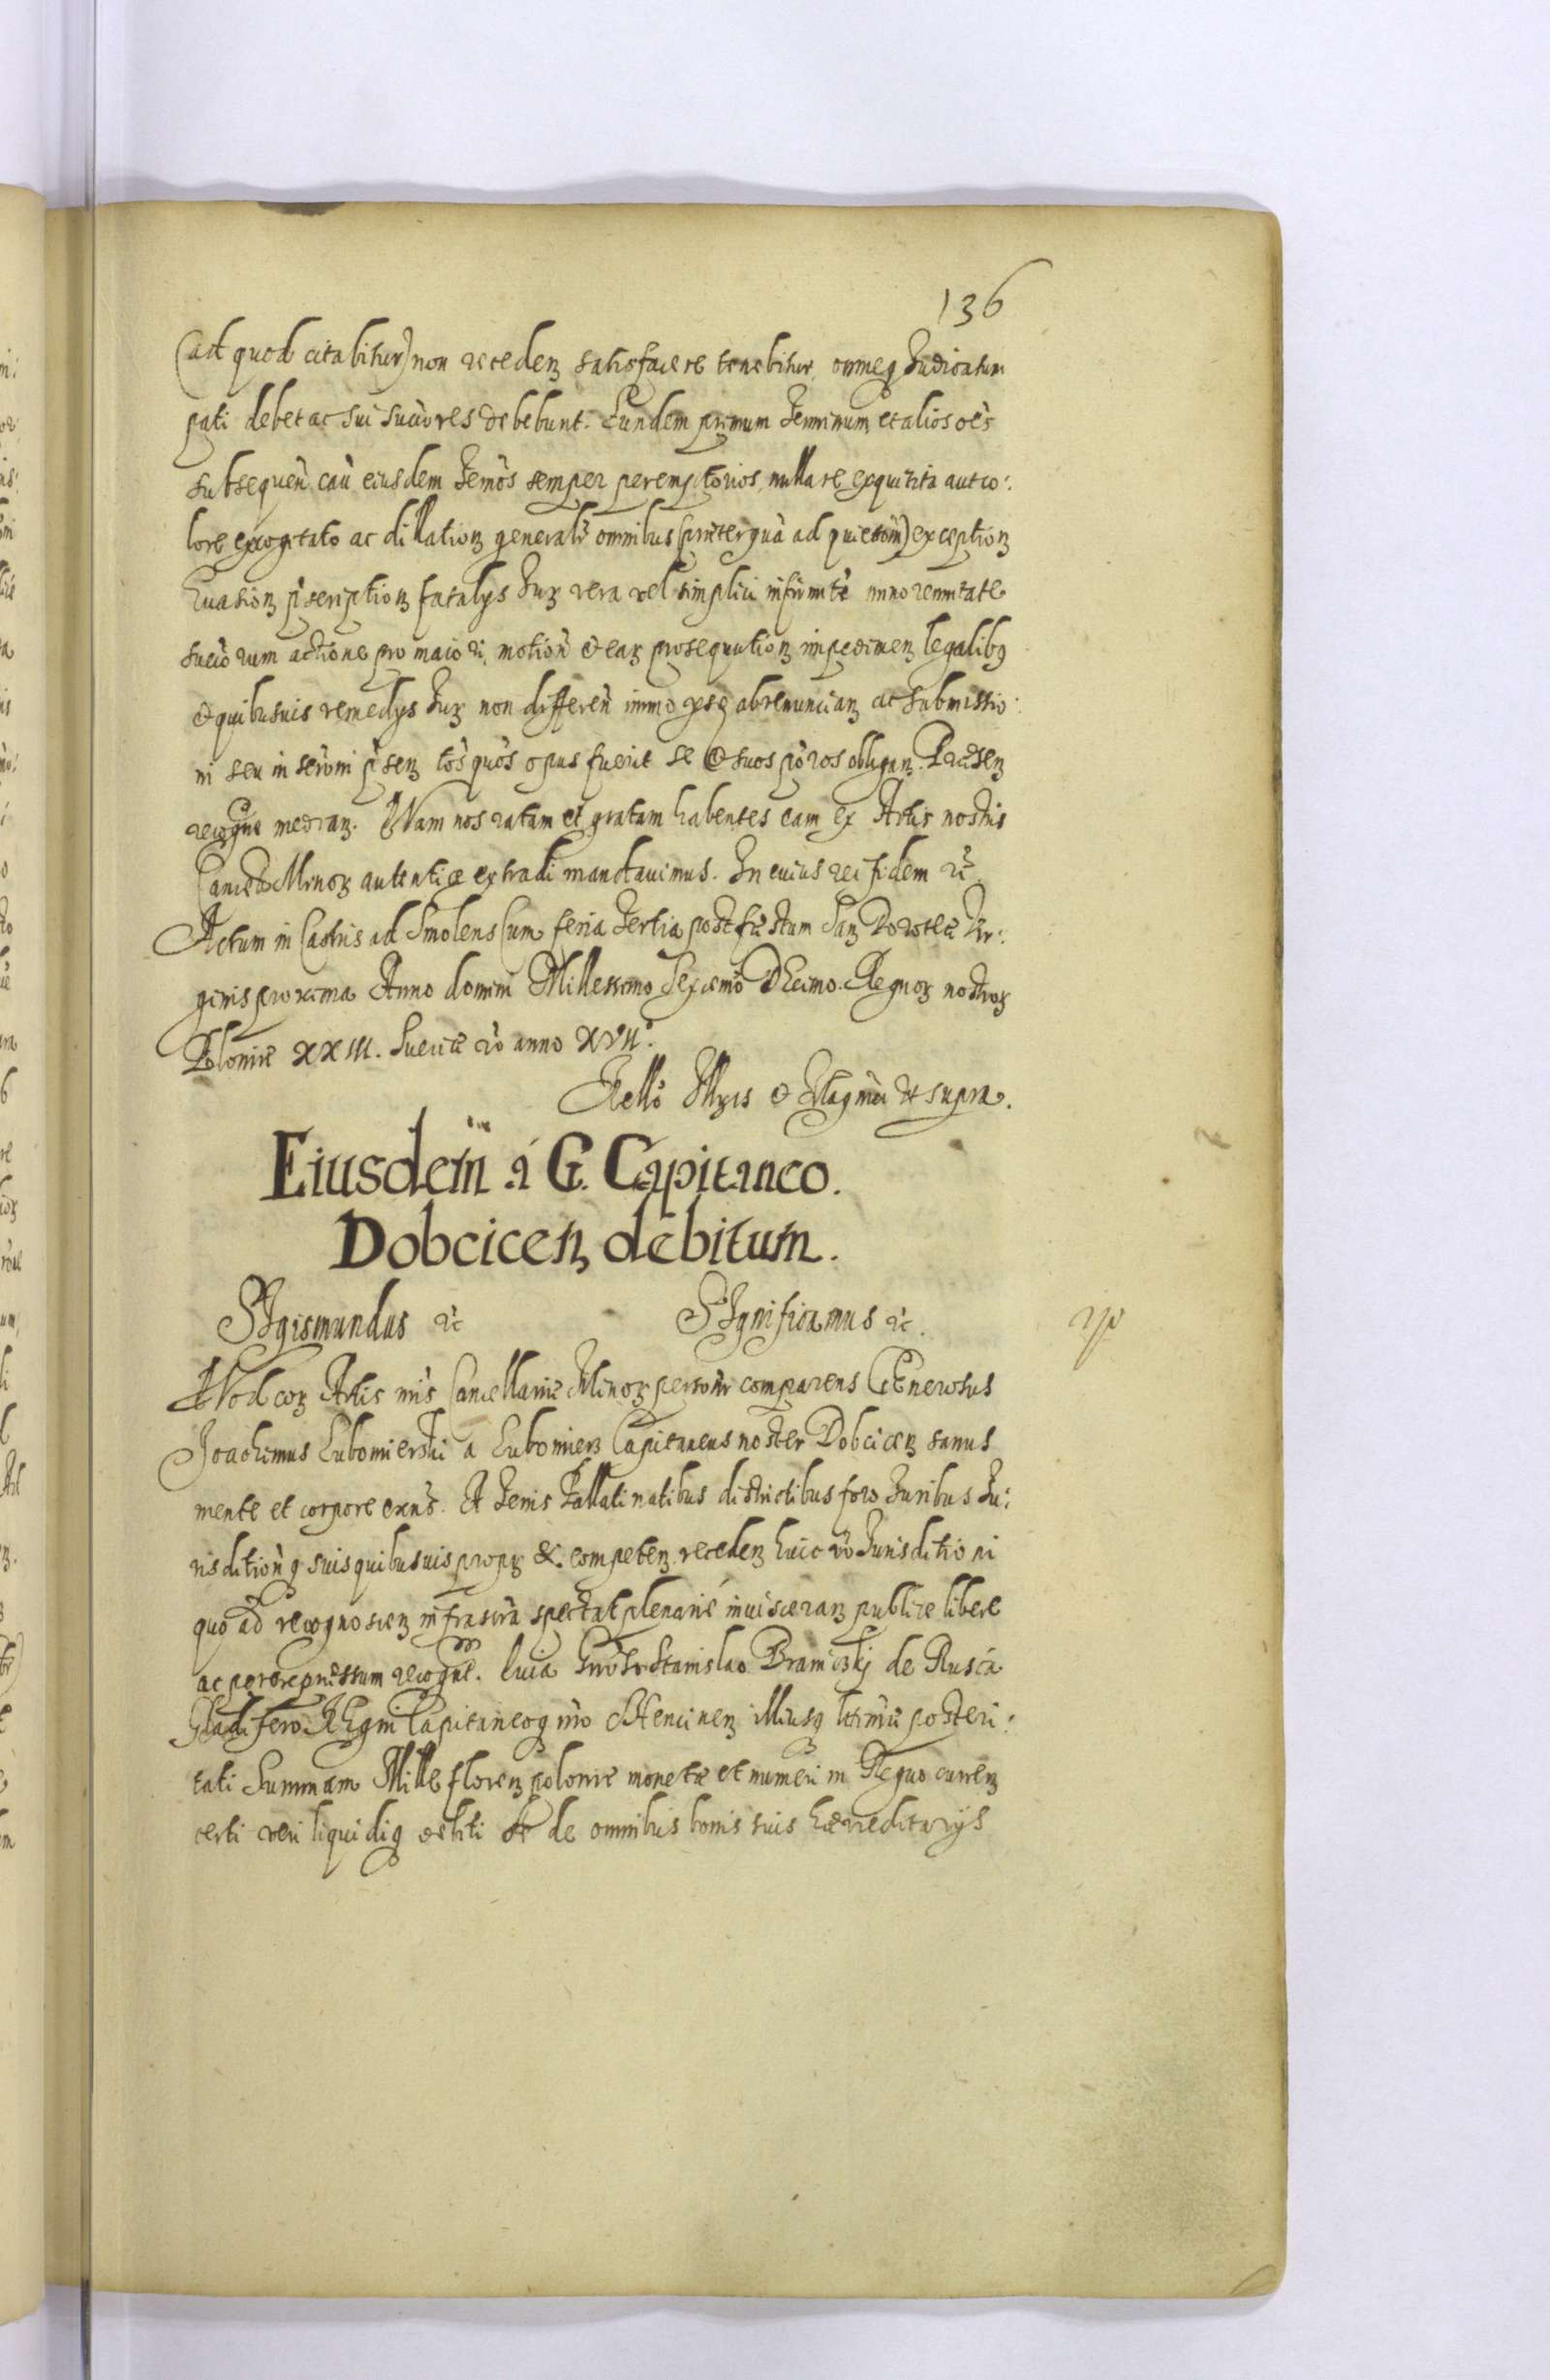 136
(ad quod citabitur) non recedenꝫ satisfacere tenebitur, omneꝗ Iudicatum
pati debet ac sui succores debebunt. Eundem primum Terminum et alios oēs
subsequen̄ cau eiusdem Temōs semper peremptorios, nulla re exquisita aut co:
lore excogitato ac dillationꝫ generalr omnibus (præterquā ad quietom̄) exceptionꝫ
Euasionꝫ pscriptionꝫ fatalys Iurꝫ vera vel simplici infirmte minorennitate
succorum actione pro maiori, motion̄ & earꝫ prosequutionꝫ impedimenꝫ legalibꝰ
& quibusuis remedys Iurꝫ non differen̄ immo ipsꝫ abrenuncianꝫ ac submissio:
ni seu inserōni psenꝫ tos quos opus fuerit se & suos pōros obliganꝫ. Præsenꝫ
recogne medianꝫ. Quam nos ratam et gratam habentes eam ex Actis nostris
Cancell Minorꝫ autentice extradi mandauimus. In cuius rei fidem ꝛc
Actum in Castris ad Smolenscum feria Tertia post festum San Doroteæ Vir:
ginis proxima Anno domini Millesimo Sexcemo DEcimo. Regnorꝫ nostrorꝫ
Poloniæ XXIII. Sueciæ vo anno XVII°.
Rello Illris & Magnci ut supra.
Eiusdem a G. Capitaneo.
Dobcicenꝫ debitum.
SIgismundus ꝛc SIgnificamus ꝛc.
QVod corꝫ Actis nris Cancellariæ Minorꝫ personlr comparens GEnerosus
Joachimus Lubomierski a Lubomierꝫ Capitaneus noster Dobcicenꝫ sanus
mente et corpore exns. A Terris Pallatinatibus districtibus foro Iuribus Iu:
risdition̄ꝗ suis quibusuis proprꝫ &. competenꝫ recedenꝫ huic vo Iurisditioni
quo ad recognoscenꝫ infrascra spectat plenarie inuisceranꝫ publice libere
ac per expressum recogne. Quia Gnoso Stanislao Braniczki de Rusca
Gladifero REgni Capitaneoꝗ nro Chencinenꝫ illiusꝗ ltimæ posteri:
tati Summam Mille florenꝫ polonie monetæ et numeri in Regno currenꝫ
certi veri liquidiꝗ debiti de omnibus bonis suis hæreditarijs